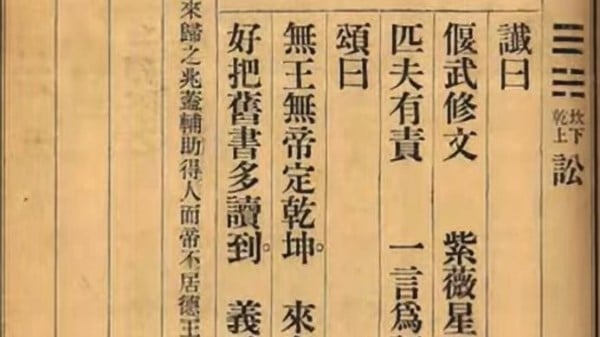 坎下
乾上
訟
讖曰
偃武修文 紫薇星
匹夫有責 一言爲
頌曰
無王無帝定乾坤。 來
好把舊書多讀到。 義
來歸之兆蓋輔助得人而帝不居德王